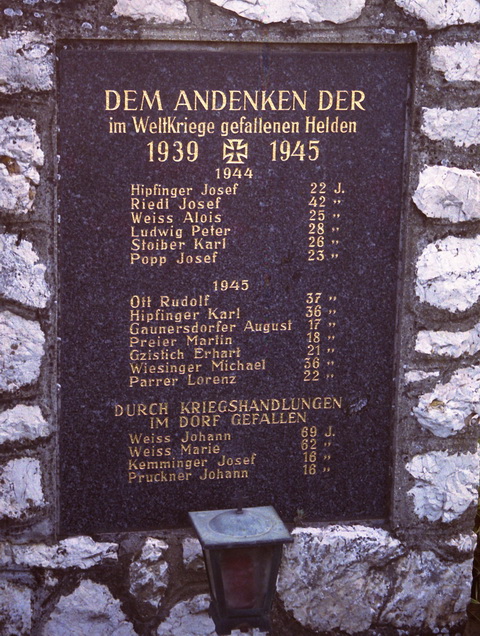 DEM ANDENKEN DER
im WeltKriege gefallenen Helden
1939 1945
1944
Hipfinger Josef 22 J.
Riedl Josef 42 "
Weiss Alois 25 "
Ludwig Peter 28 "
Stoiber Karl 26 "
Popp Josef 23 "
1945
Ott Rudolf 37 "
Hipfinger Karl 36 "
Gaunersdorfer August 17 "
Preier Martin 18 "
Gzistich Erhart 21 "
Wiesinger Michael 36 "
Parrer Lorenz 22 "
DURCH KRIEGSHANDLUNGEN
IM DORF GEFALLEN
Weiss Johann 69 J.
Weiss Marie 62 "
Kemminger Josef 16 "
Pruckner Johann 16 "